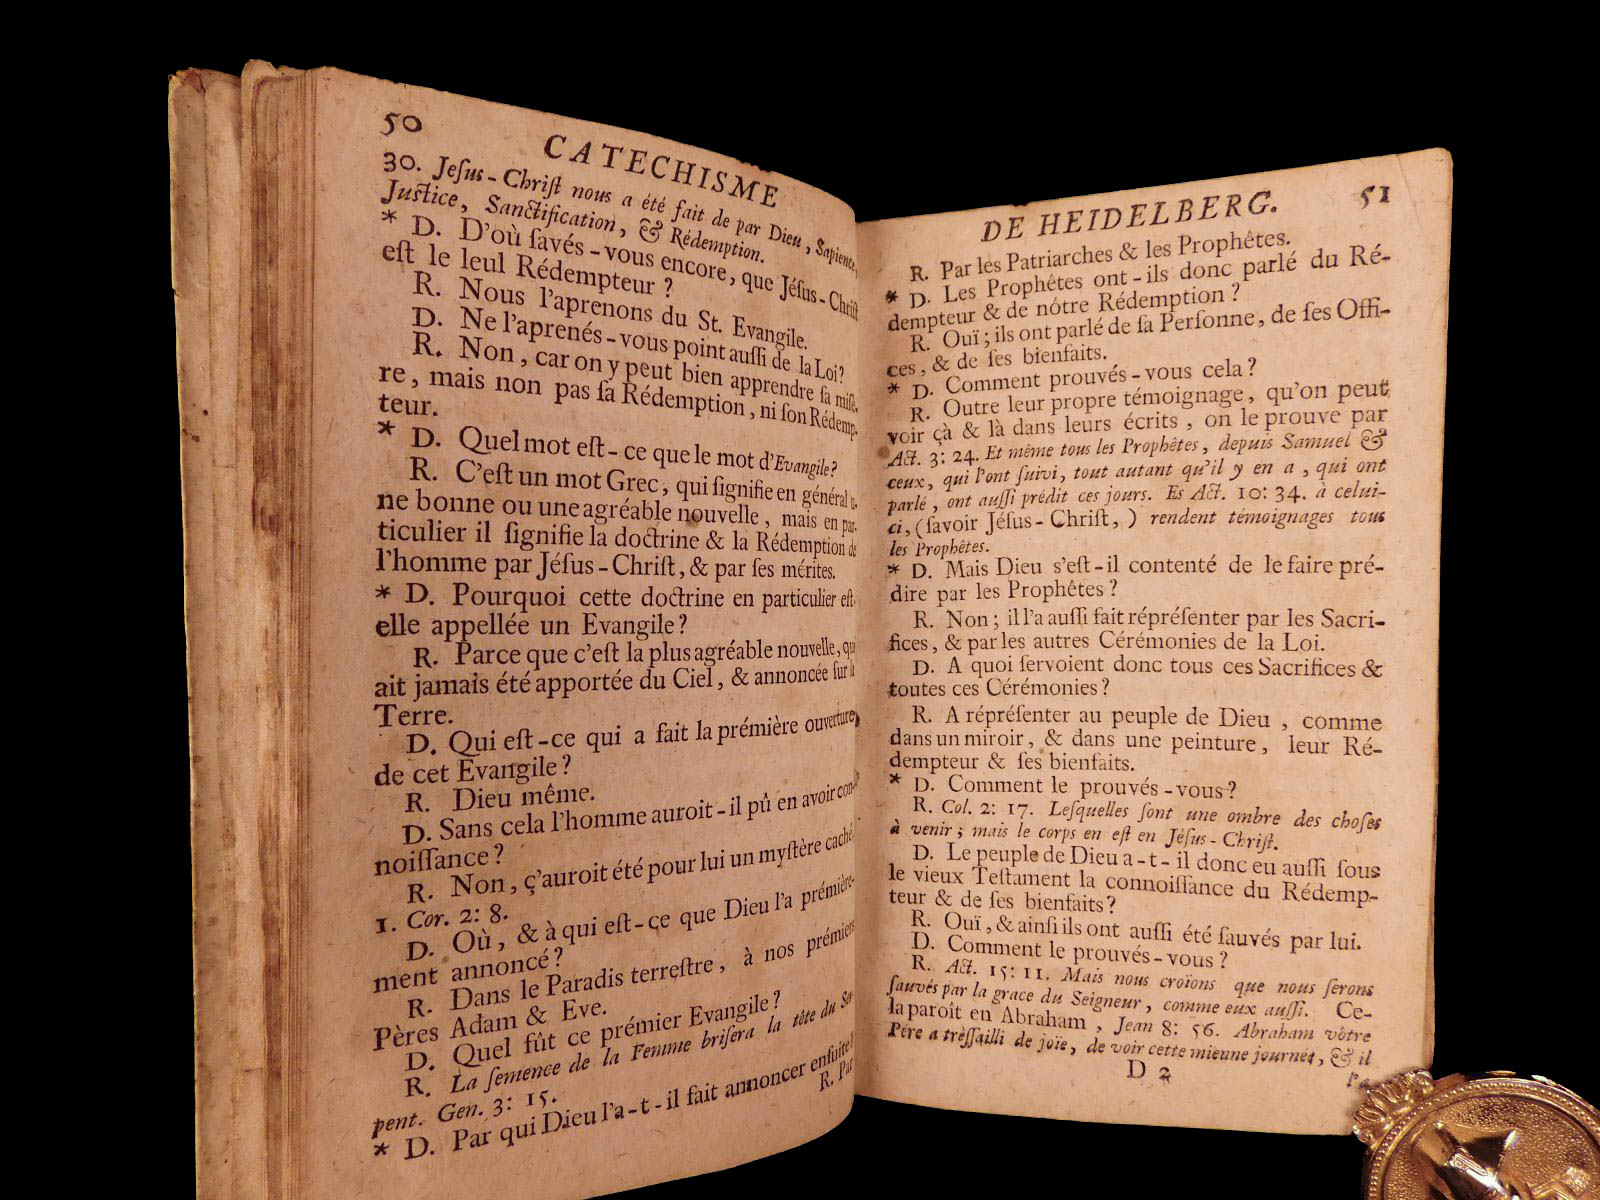 50
CATECHISME
30. Jeſus-Chriſt nous a été fait de par Dieu, Sapience,
Juſtice, Sanctification, & Rédemption.
* D. D'où ſavés-vous encore, que Jéſus-Chriſt
eſt le leul Rédempteur ?
R. Nous l'aprenons du St. Evangile.
D. Ne l'aprenés-vous point auſſi de la Loi?
R. Non, car on y peut bien apprendre ſa miſe-
re, mais non pas ſa Rédemption, ni ſon Rédemp-
teur.
* D. Quel mot eſt-ce que le mot d'Evangile?
R. C'eſt un mot Grec, qui ſignifie en général u-
ne bonne ou une agréable nouvelle, mais en par-
ticulier il ſignifie la doctrine & la Rédemption de
l'homme par Jéſus-Chriſt, & par ſes mérites.
* D. Pourquoi cette doctrine en particulier eſt-
elle appellée un Evangile?
R. Parce que c'eſt la plus agréable nouvelle, qui
ait jamais été apportée du Ciel, & annoncée ſur la
Terre.
D. Qui eſt-ce qui a fait la prémière ouverture
de cet Evangile?
R. Dieu même.
D. Sans cela l'homme auroit-il pû en avoir con-
noiſſance?
R. Non, ç'auroit été pour lui un myſtère caché,
1. Cor. 2: 8.
D. Où, & à qui eſt-ce que Dieu l'a prémière-
ment annoncé?
R. Dans le Paradis terreſtre, à nos prémiers
Pères Adam & Eve.
D. Quel fût ce prémier Evangile?
R. La ſemence de la Femme briſera la tête du Ser-
pent. Gen. 3: 15.
* D. Par qui Dieu l'a-t-il fait annoncer enſuite?
R. Par
51
DE HEIDELBERG.
R. Par les Patriarches & les Prophêtes.
* D. Les Prophêtes ont-ils donc parlé du Ré-
dempteur & de nôtre Rédemption ?
R. Ouï; ils ont parlé de ſa Perſonne, de ſes Offi-
ces, & de ſes bienfaits.
* D. Comment prouvés-vous cela?
R. Outre leur propre témoignage, qu'on peut
voir çà & là dans leurs écrits, on le prouve par
Act. 3: 24. Et même tous les Prophêtes, depuis Samuel &
ceux, qui l'ont ſuivi, tout autant qu'il y en a, qui ont
parlé, ont auſſi prédit ces jours. Es Act. 10: 34. à celui-
ci, (ſavoir Jéſus-Chriſt,) rendent témoignages tous
les Prophêtes.
* D. Mais Dieu s'eſt-il contenté de le faire pré-
dire par les Prophêtes?
R. Non; il l'a auſſi fait répréſenter par les Sacri-
fices, & par les autres Cérémonies de la Loi.
D. A quoi ſervoient donc tous ces Sacrifices &
toutes ces Cérémonies?
R. A répréſenter au peuple de Dieu, comme
dans un miroir, & dans une peinture, leur Ré-
dempteur & ſes bienfaits.
* D. Comment le prouvés-vous?
R. Col. 2: 17. Leſquelles ſont une ombre des choſes
à venir; mais le corps en eſt en Jéſus-Chriſt.
D. Le peuple de Dieu a-t-il donc eu auſſi ſous
le vieux Teſtament la connoiſſance du Rédemp-
teur & de ſes bienfaits?
R. Ouï, & ainſi ils ont auſſi été ſauvés par lui.
D. Comment le prouvés-vous?
R. Act. 15: 11. Mais nous croïons que nous ſerons
ſauvés par la grace du Seigneur, comme eux auſſi. Ce-
la paroît en Abraham, Jean 8: 56. Abraham vôtre
Père a trèſſailli de joïe, de voir cette mieune journée, & il
D 2
l'a